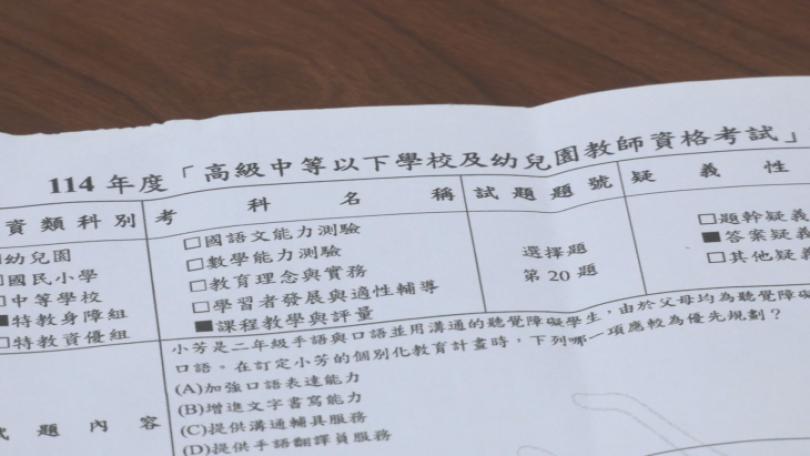 114 年度「高級中等以下學校及幼兒園教師資格考試」
資類科別 考科名稱 試題題號 疑義性
幼兒園
□國民小學
□中等學校
■特教身障組
□特教資優組
□國語文能力測驗
□數學能力測驗
□教育理念與實務
□學習者發展與適性輔導
■課程教學與評量
選擇題
第 20 題
□題幹疑義
■答案疑義
□其他疑義
試題內容
小芳是二年級手語與口語並用溝通的聽覺障礙學生,由於父母均為聽覺障礙
口語。在訂定小芳的個別化教育計畫時,下列哪一項應較為優先規劃?
(A)加強口語表達能力
(B)增進文字書寫能力
(C)提供溝通輔具服務
(D)提供手語翻譯員服務